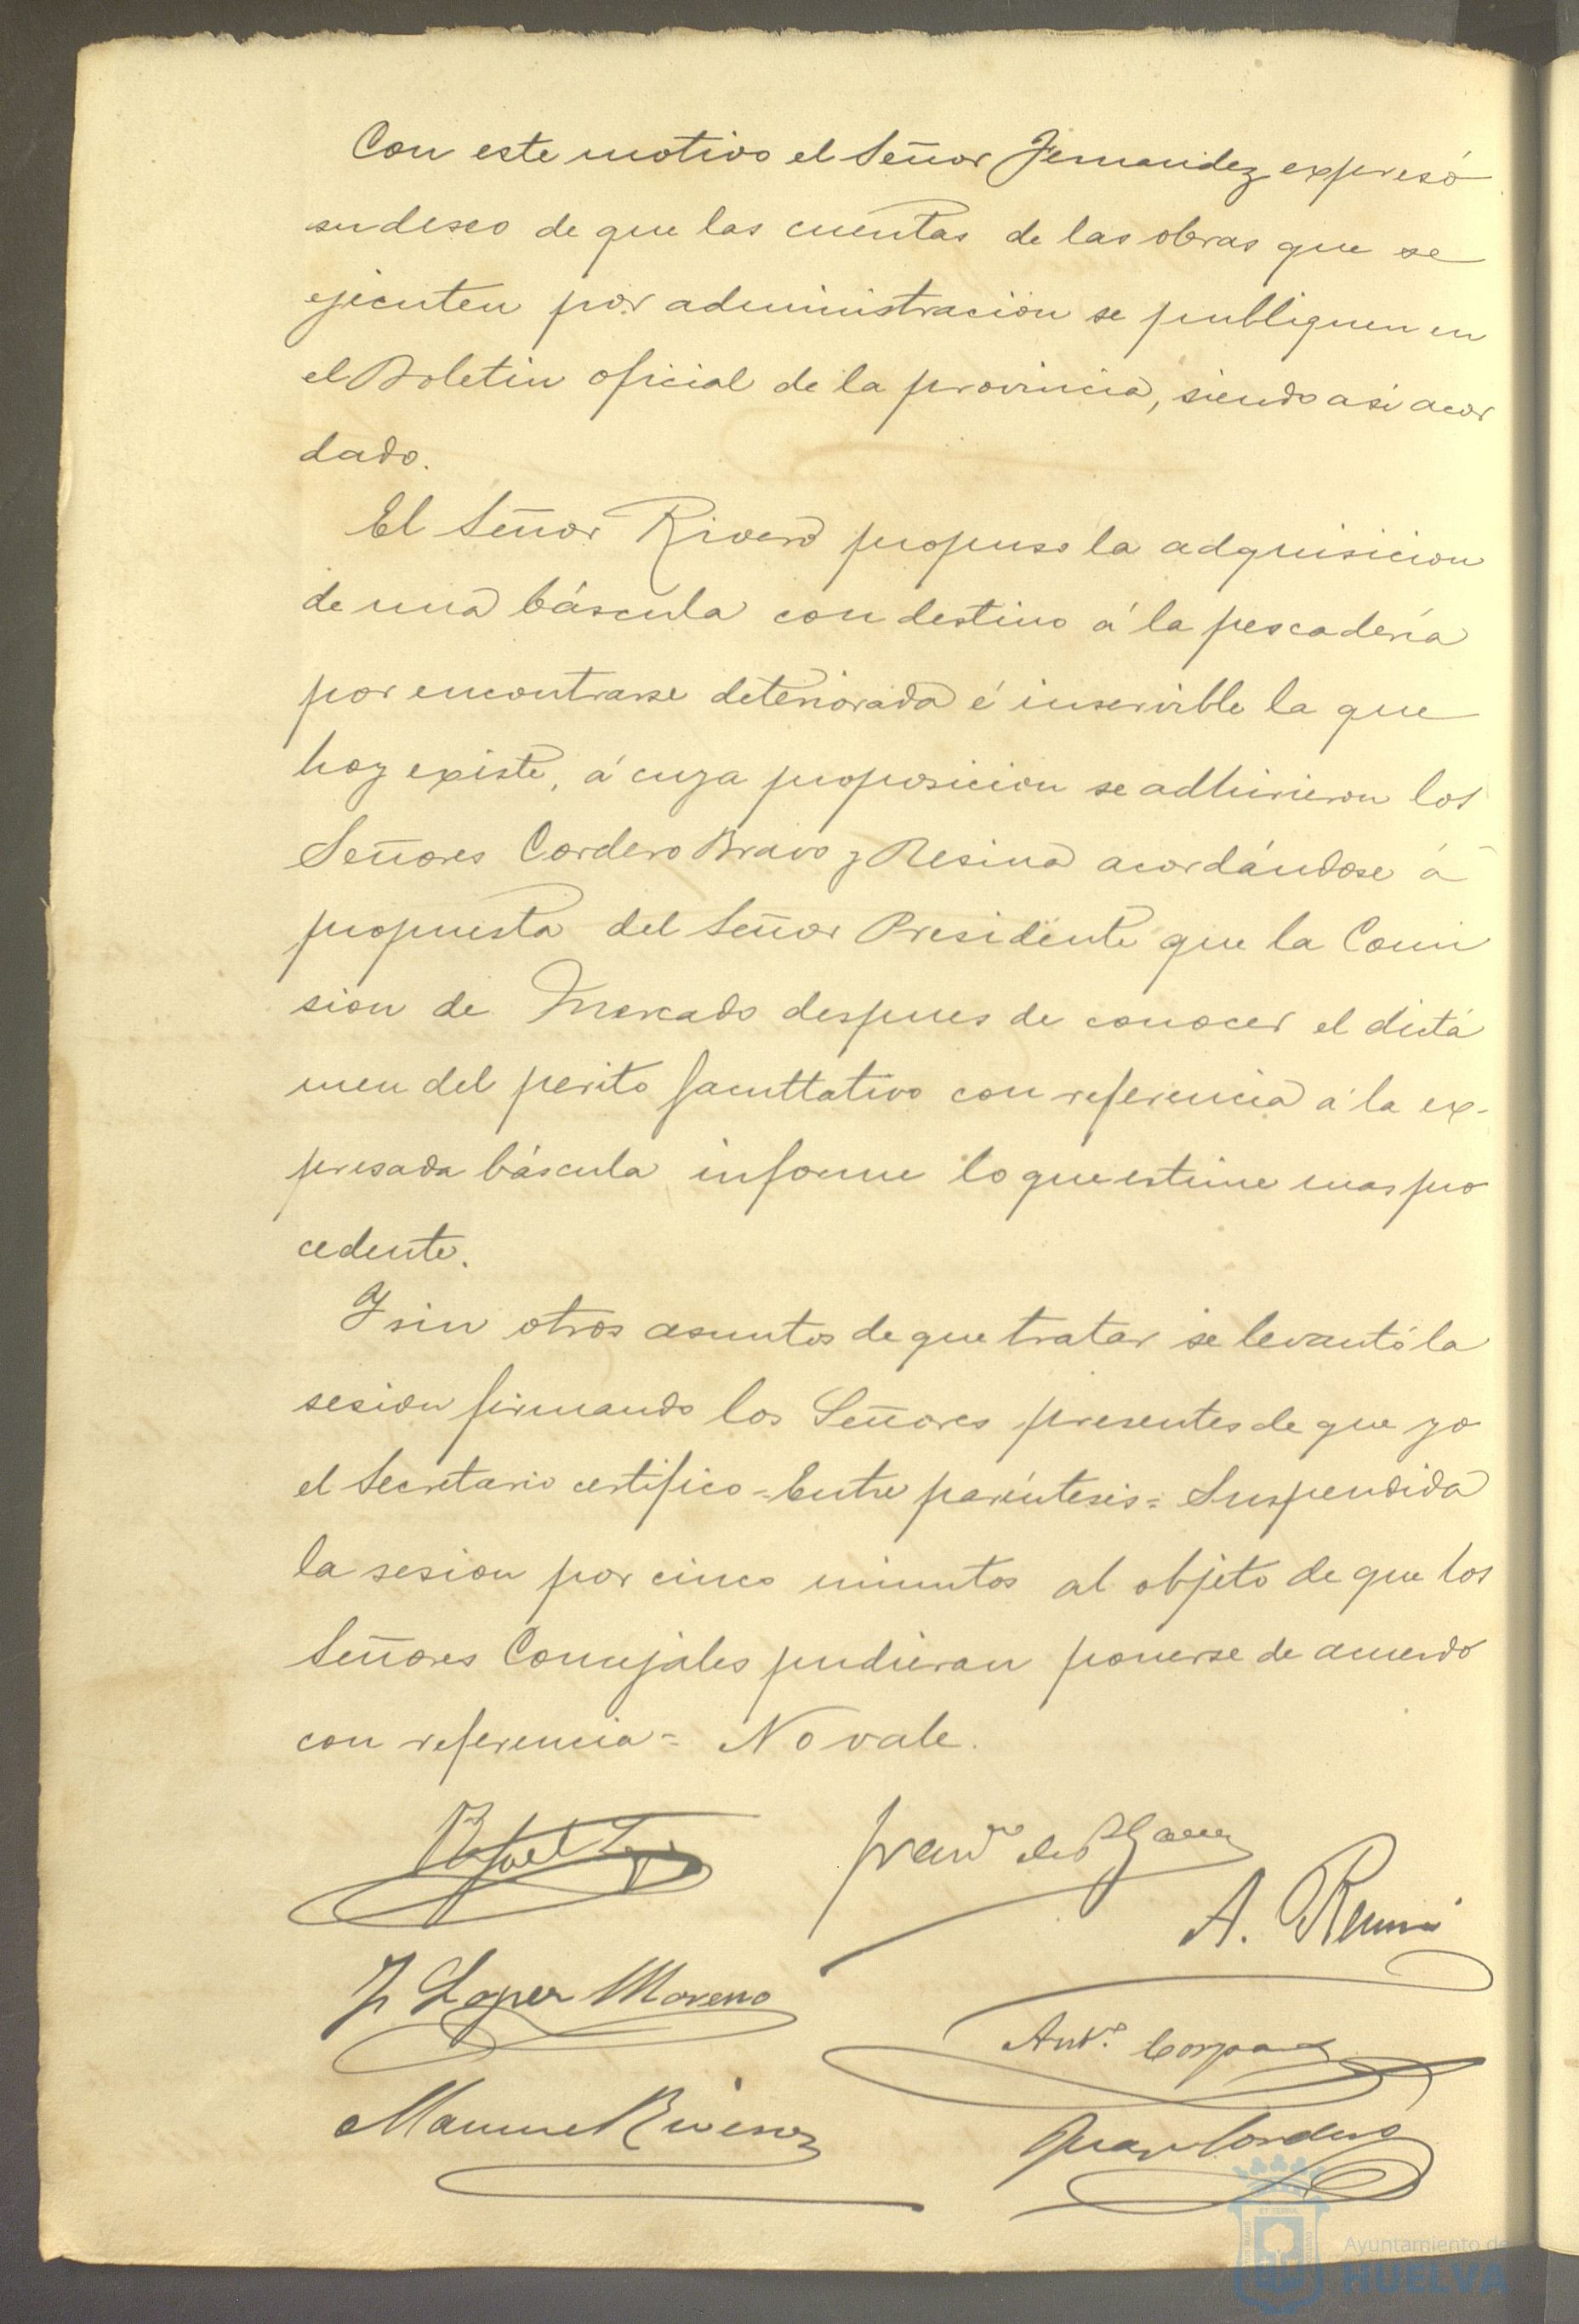 Con este motivo el Señor Fernandez expresó
su deseo de que las cuentas de las obras que se
ejecuten por administracion se publiquen en
el Boletin oficial de la provincia, siendo asi acor
dado.
El Señor Rivero propuso la adquisicion
de una báscula con destino á la pescadería
por encontrarse deteriorada é inservible la que
hoy existe, á cuya proposicion se adhirieron los
Señores Cordero Bravo y Resina acordándose á
propuesta del Señor Presidente que la Comi
sion de Mercado despues de conocer el dictá
men del perito facultativo con referencia á la ex-
presada báscula informe lo que estime mas pro
cedente.
Y sin otros asuntos de que tratar se levantó la
sesion firmando los Señores presentes de que yo
el Secretario certifico = Entre paréntesis = Suspendida
la sesion por cinco minutos al objeto de que los
Señores Concejales pudieran ponerse de acuerdo
con referencia = No vale.
Rafael
Franco de P.
A.
J Lopez Moreno
Anto. Corpas
Manuel Rivero
Juan Cordero
Ayuntamiento de
HUELVA